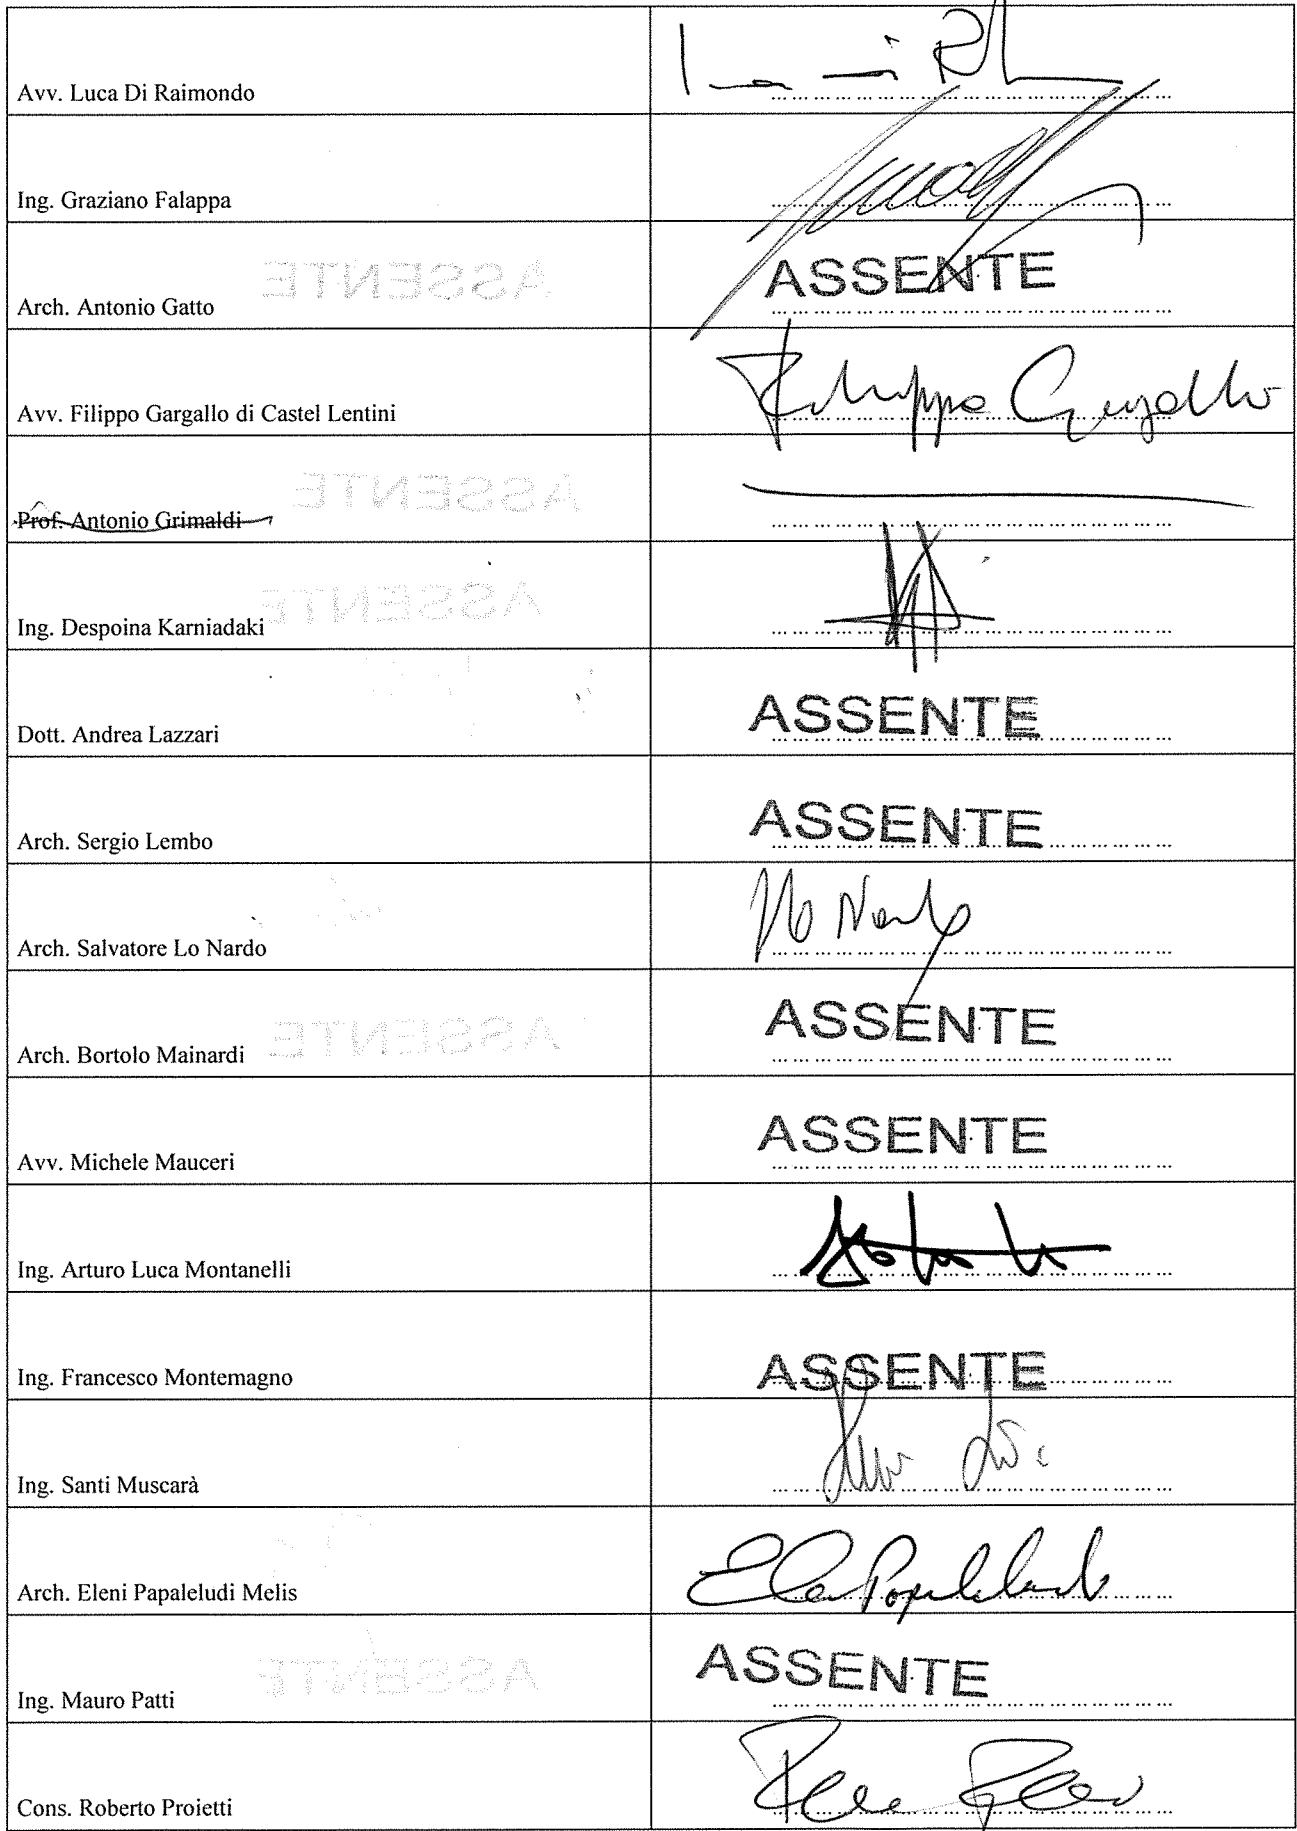 Avv. Luca Di Raimondo
Ing. Graziano Falappa
Arch. Antonio Gatto ASSENTE
Avv. Filippo Gargallo di Castel Lentini Filippo Gargallo
Prof. Antonio Grimaldi
Ing. Despoina Karniadaki
Dott. Andrea Lazzari ASSENTE
Arch. Sergio Lembo ASSENTE
Arch. Salvatore Lo Nardo Lo Nardo
Arch. Bortolo Mainardi ASSENTE
Avv. Michele Mauceri ASSENTE
Ing. Arturo Luca Montanelli
Ing. Francesco Montemagno ASSENTE
Ing. Santi Muscarà
Arch. Eleni Papaleludi Melis
Ing. Mauro Patti ASSENTE
Cons. Roberto Proietti